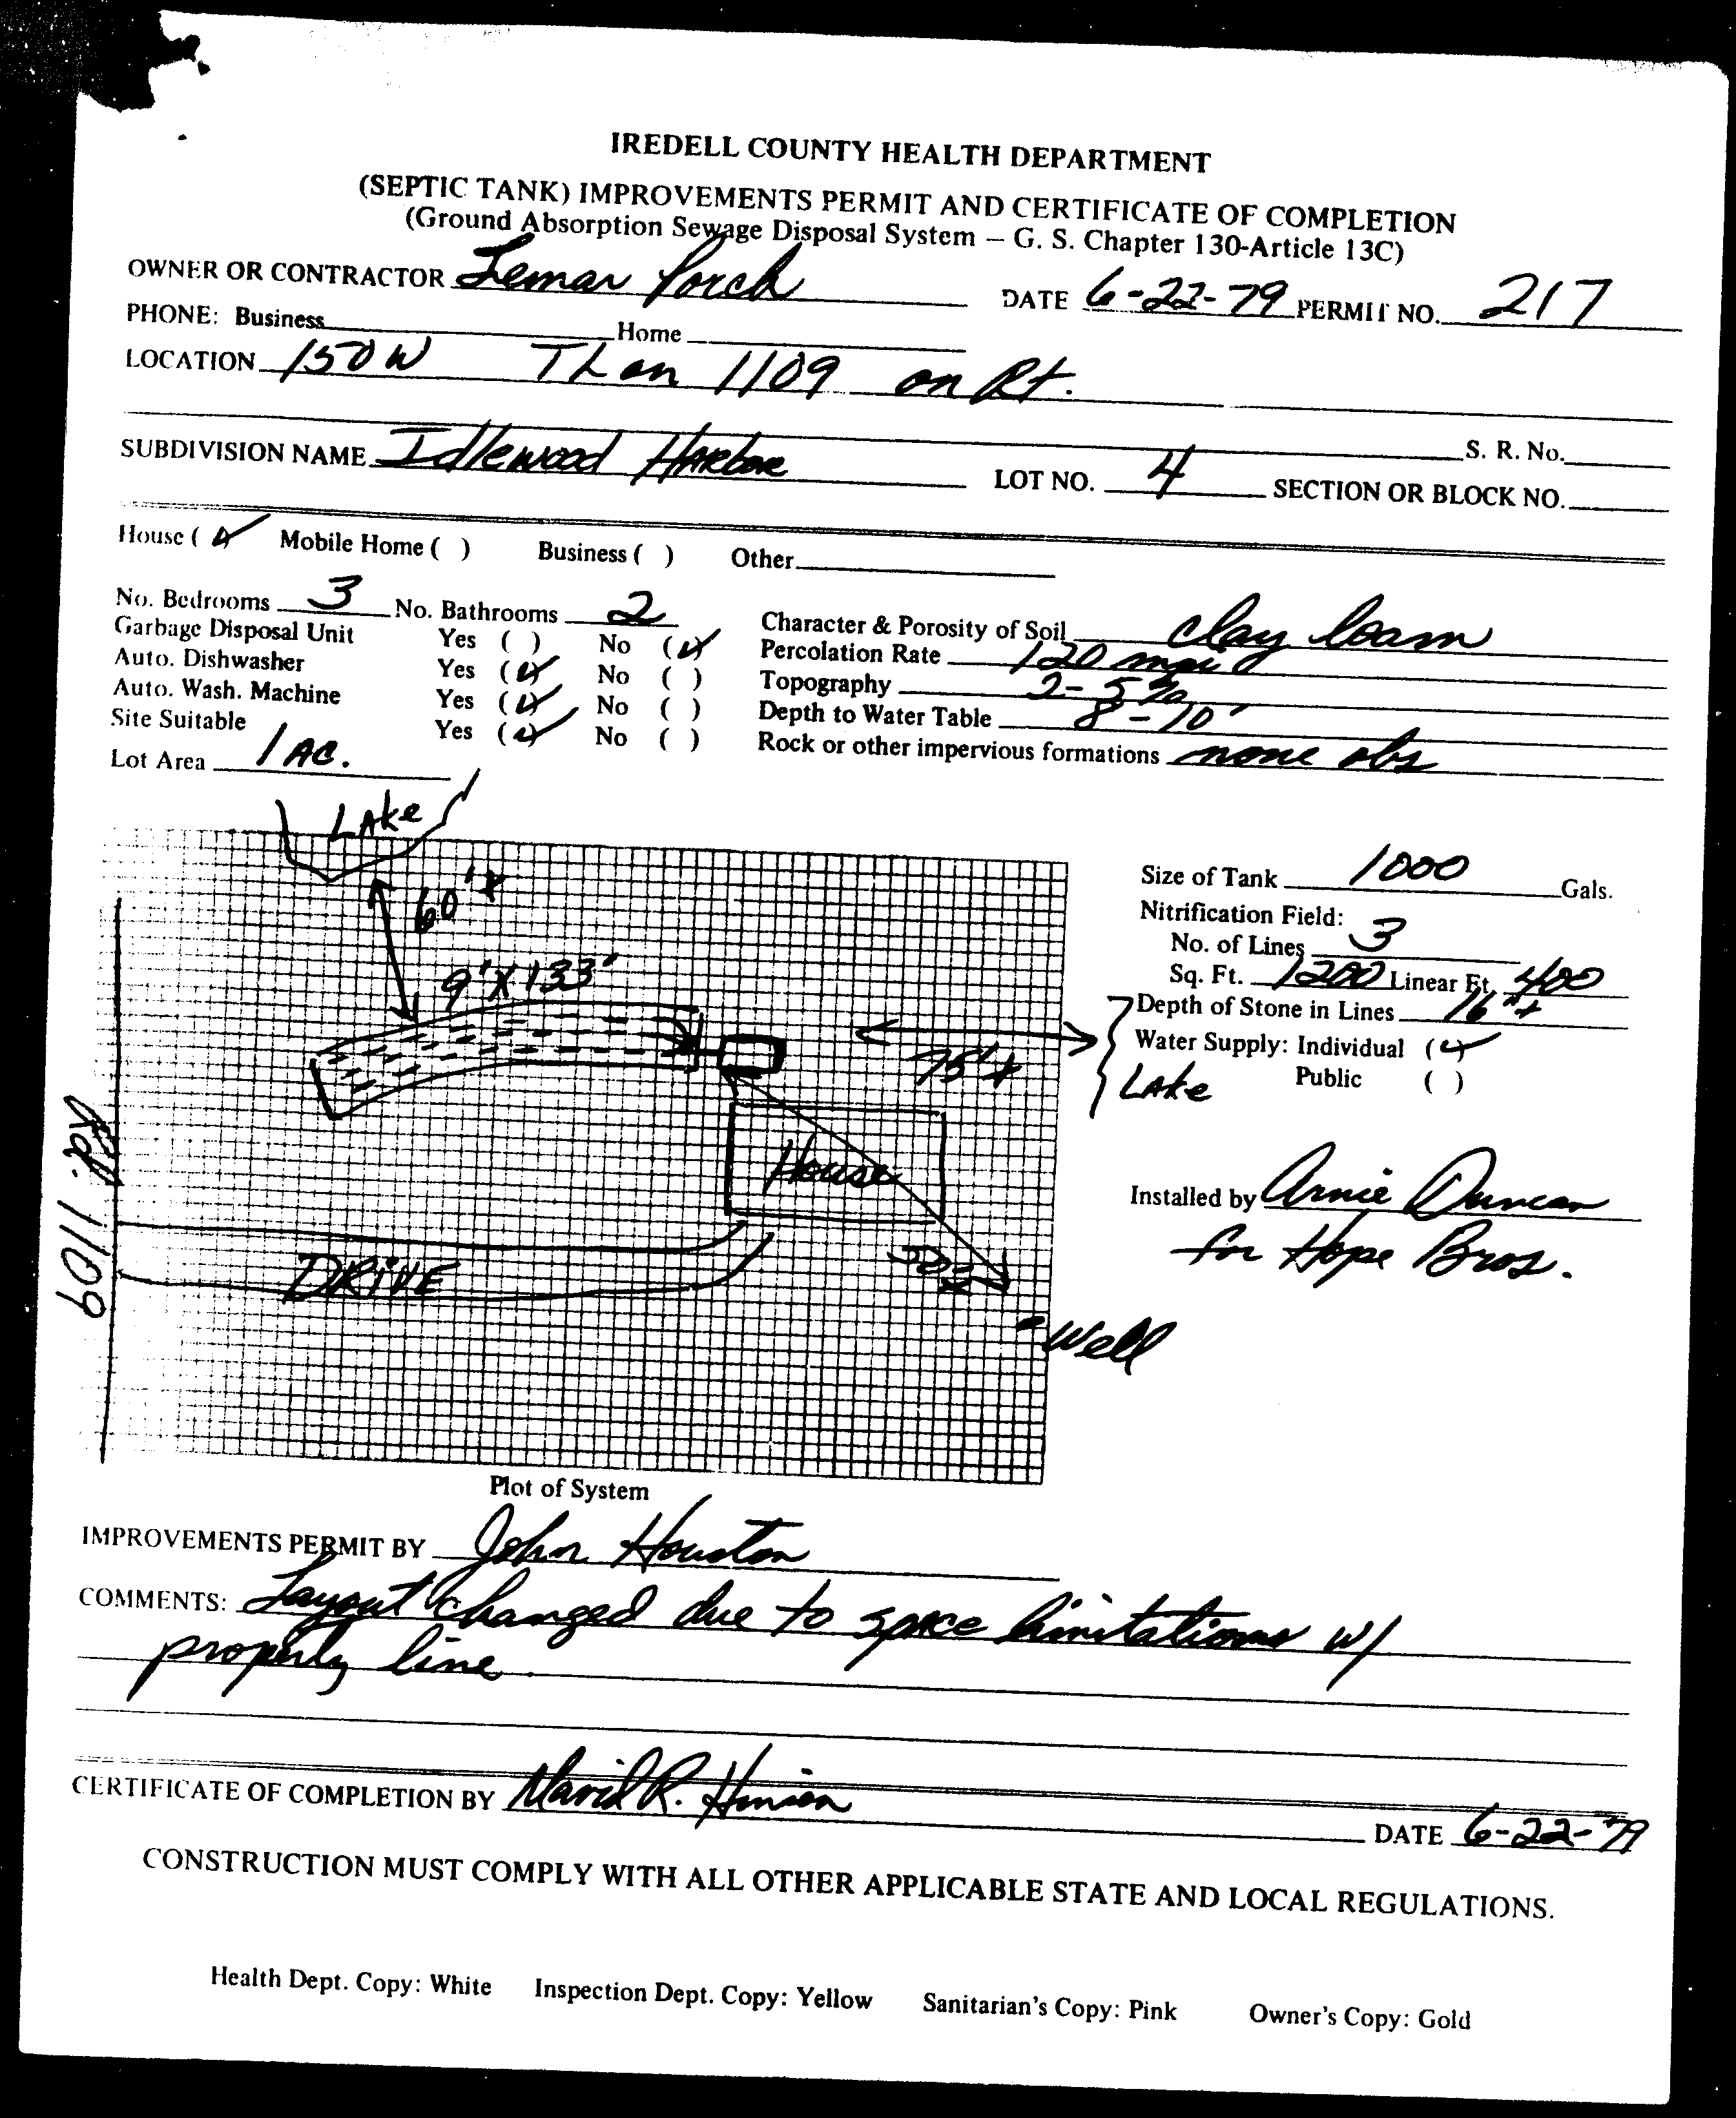 IREDELL COUNTY HEALTH DEPARTMENT
(SEPTIC TANK) IMPROVEMENTS PERMIT AND CERTIFICATE OF COMPLETION
(Ground Absorption Sewage Disposal System – G. S. Chapter 130-Article 13C)
OWNER OR CONTRACTOR Lemar Porch DATE 6-22-79 PERMIT NO. 217
PHONE: Business Home
LOCATION 150 W TL on 1109 on Rt.
S. R. No.
SUBDIVISION NAME Idlewood Harbor LOT NO. 4 SECTION OR BLOCK NO.
House (✓) Mobile Home ( ) Business ( ) Other
No. Bedrooms 3 No. Bathrooms 2 Character & Porosity of Soil clay loam
Garbage Disposal Unit Yes ( ) No (✓) Percolation Rate 120 mpi
Auto. Dishwasher Yes (✓) No ( ) Topography 2-5%
Auto. Wash. Machine Yes (✓) No ( ) Depth to Water Table 8-10'
Site Suitable Yes (✓) No ( ) Rock or other impervious formations none obs
Lot Area 1 AC.
LAke
60'+
9'X133'
75'+
LAke
House
DRIVE
Well
Rd. 1109
Size of Tank 1000 Gals.
Nitrification Field:
No. of Lines 3
Sq. Ft. 1200 Linear Ft. 400
Depth of Stone in Lines 16"+
Water Supply: Individual (✓)
Public ( )
Installed by Arnie Duncan
for Hope Bros.
Plot of System
IMPROVEMENTS PERMIT BY John Houston
COMMENTS: Layout changed due to space limitations w/
property line.
CERTIFICATE OF COMPLETION BY David R. Hinson
DATE 6-22-79
CONSTRUCTION MUST COMPLY WITH ALL OTHER APPLICABLE STATE AND LOCAL REGULATIONS.
Health Dept. Copy: White Inspection Dept. Copy: Yellow Sanitarian's Copy: Pink Owner's Copy: Gold